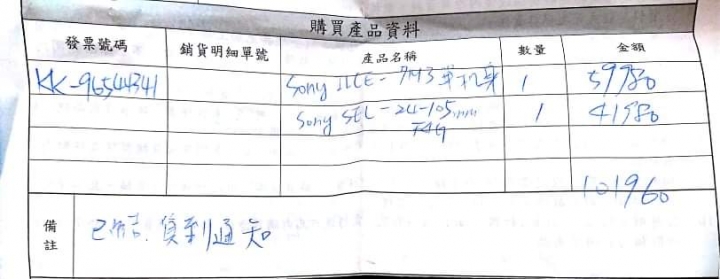 購買產品資料
發票號碼 銷貨明細單號 產品名稱 數量 金額
KK-96544341 Sony ILCE-7M3單機身 1 59980
Sony SEL-24-105mm 1 41980
F4G
101960
備註 貨到通知